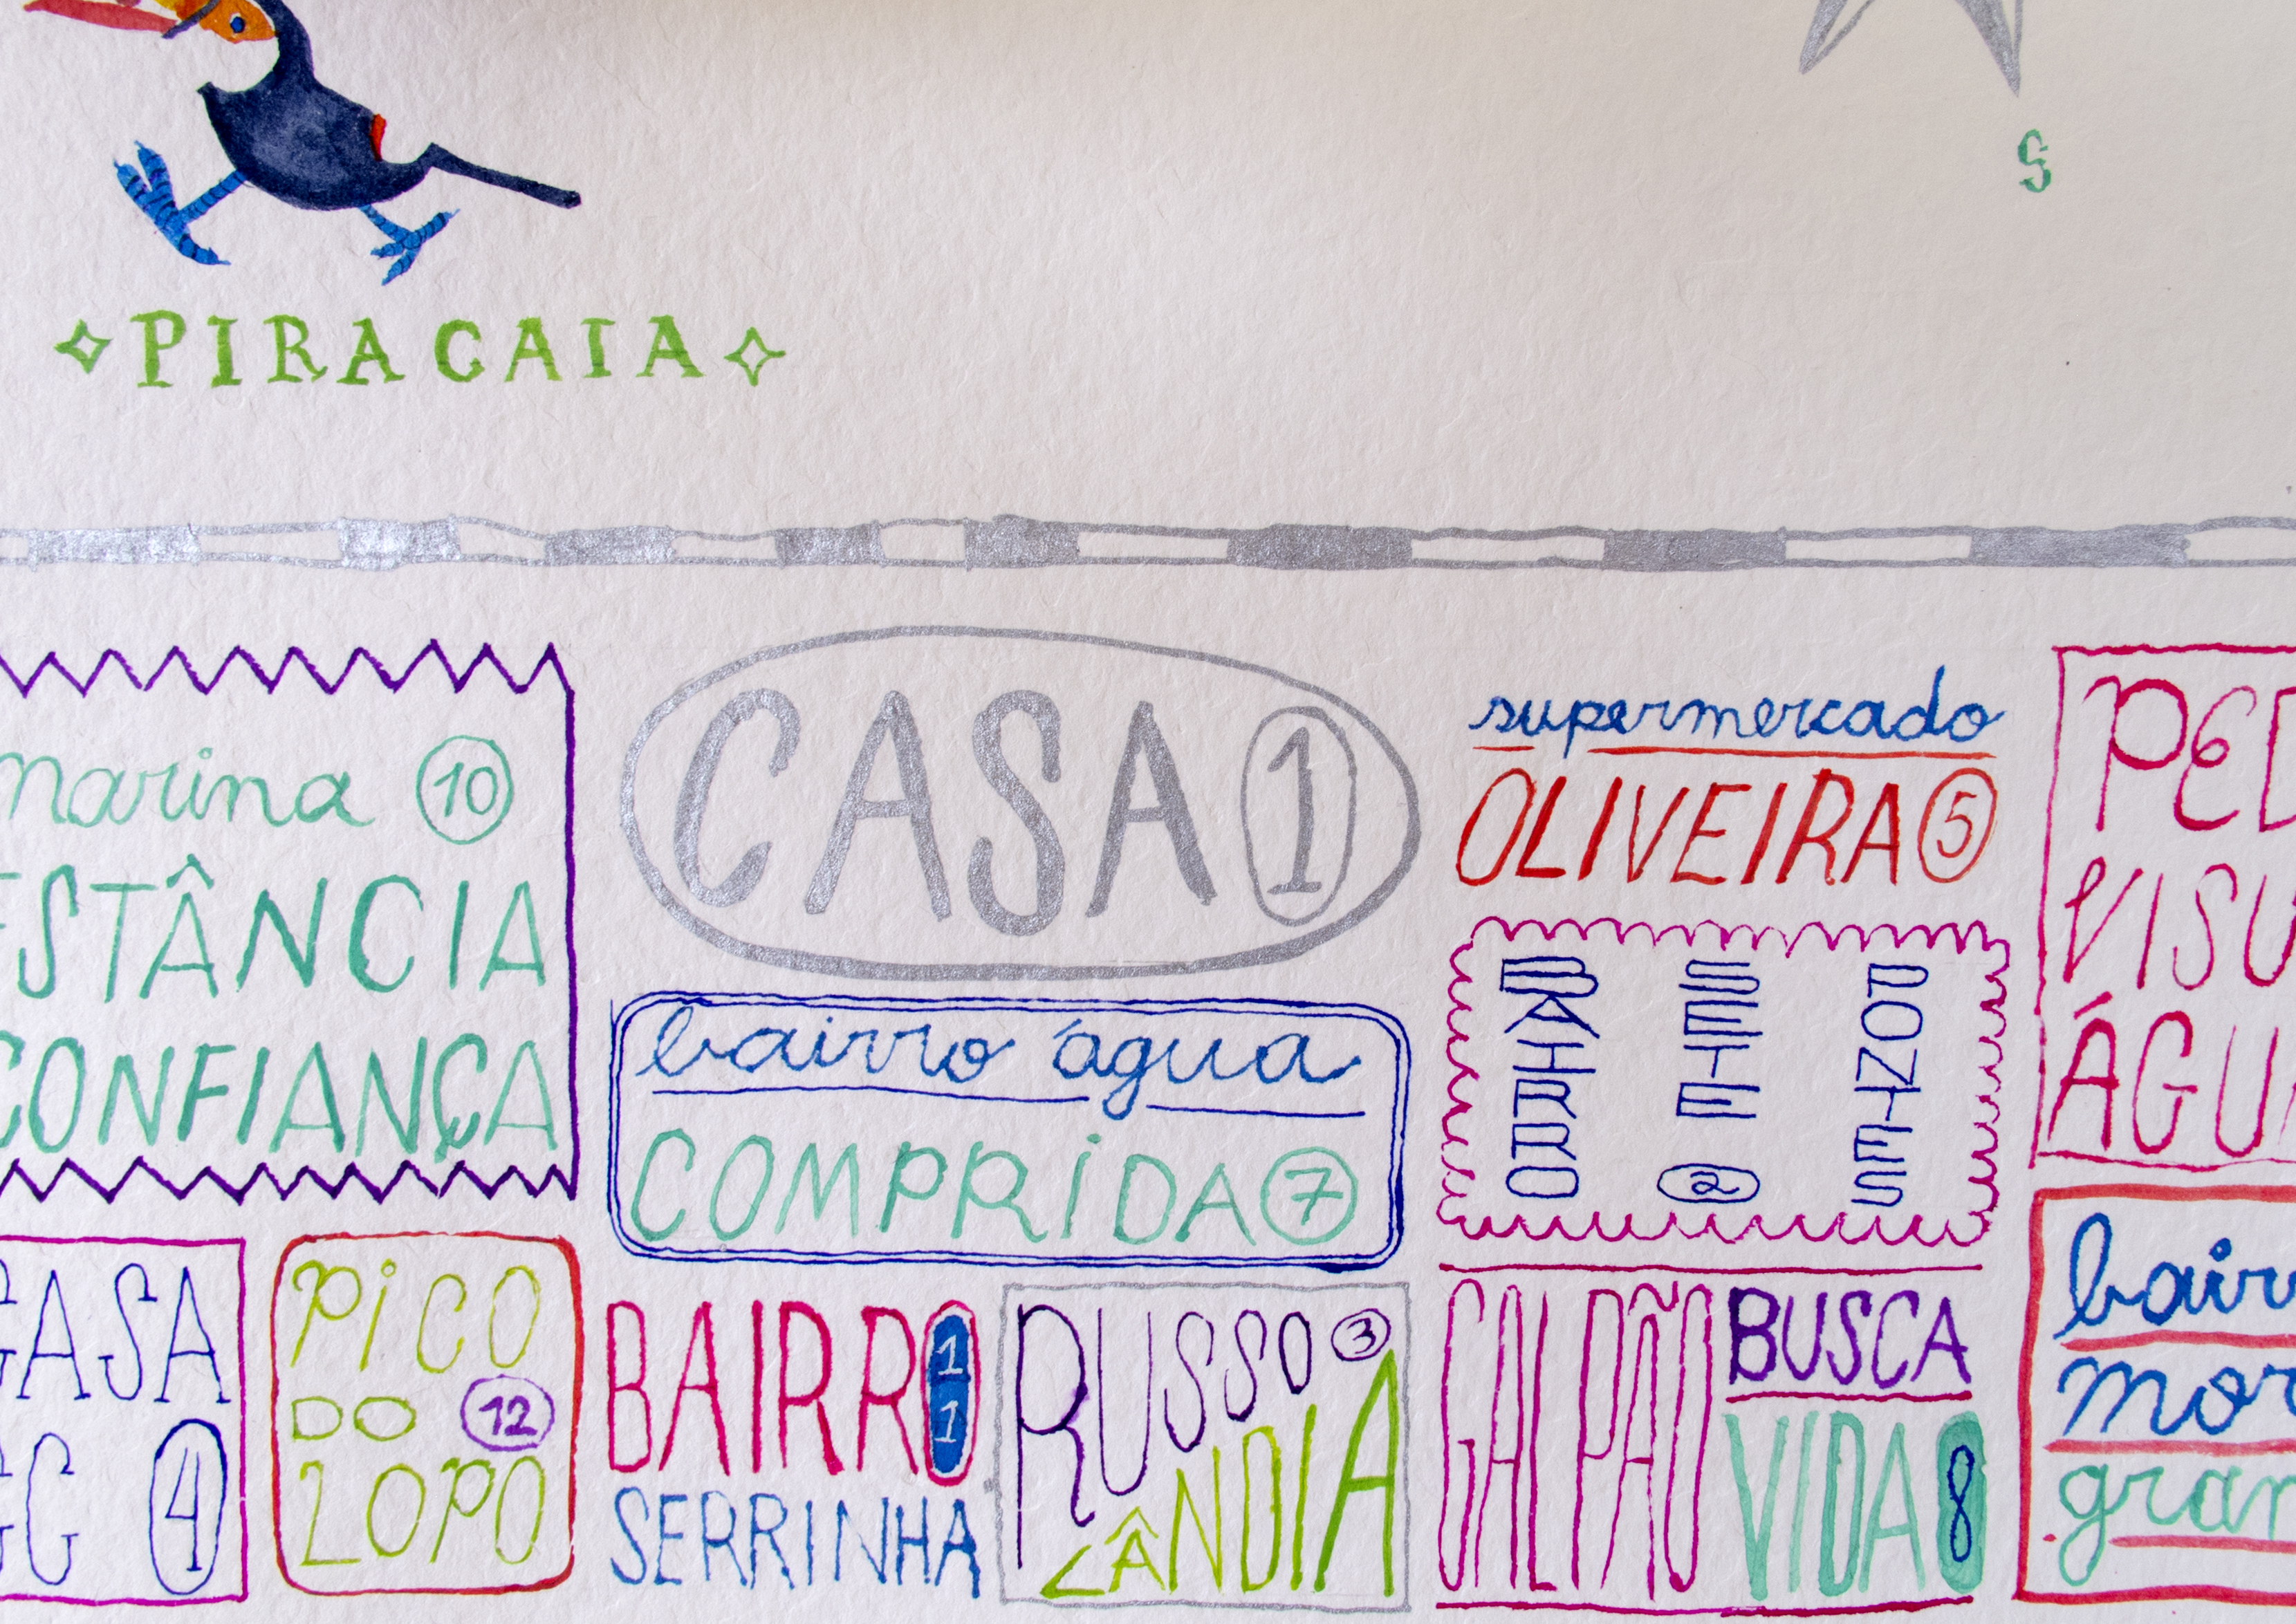 S
PIRACAIA
marina 10
ESTÂNCIA
CONFIANÇA
CASA 1
supermercado
OLIVEIRA 5
PED
VISU
ÁGUA
bairro água
COMPRIDA 7
BAIRRO SETE PONTES
2
CASA
4
PICO
DO 12
LOPO
BAIRRO 11
SERRINHA
RUSSO 3
LÂNDIA
GALPÃO BUSCA
VIDA 8
bair
mor
gran